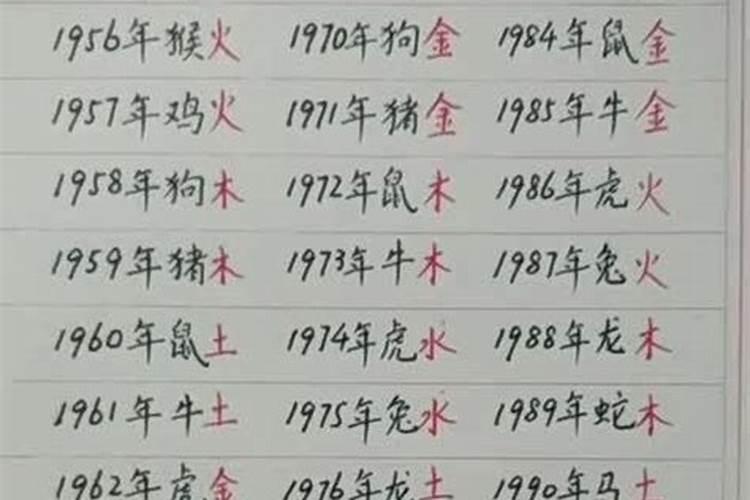 1956年猴火 1970年狗金 1984年鼠金
1957年鸡火 1971年猪金 1985年牛金
1958年狗木 1972年鼠木 1986年虎火
1959年猪木 1973年牛木 1987年兔火
1960年鼠土 1974年虎水 1988年龙木
1961年牛土 1975年兔水 1989年蛇木
1962年虎金 1976年龙土 1990年马土